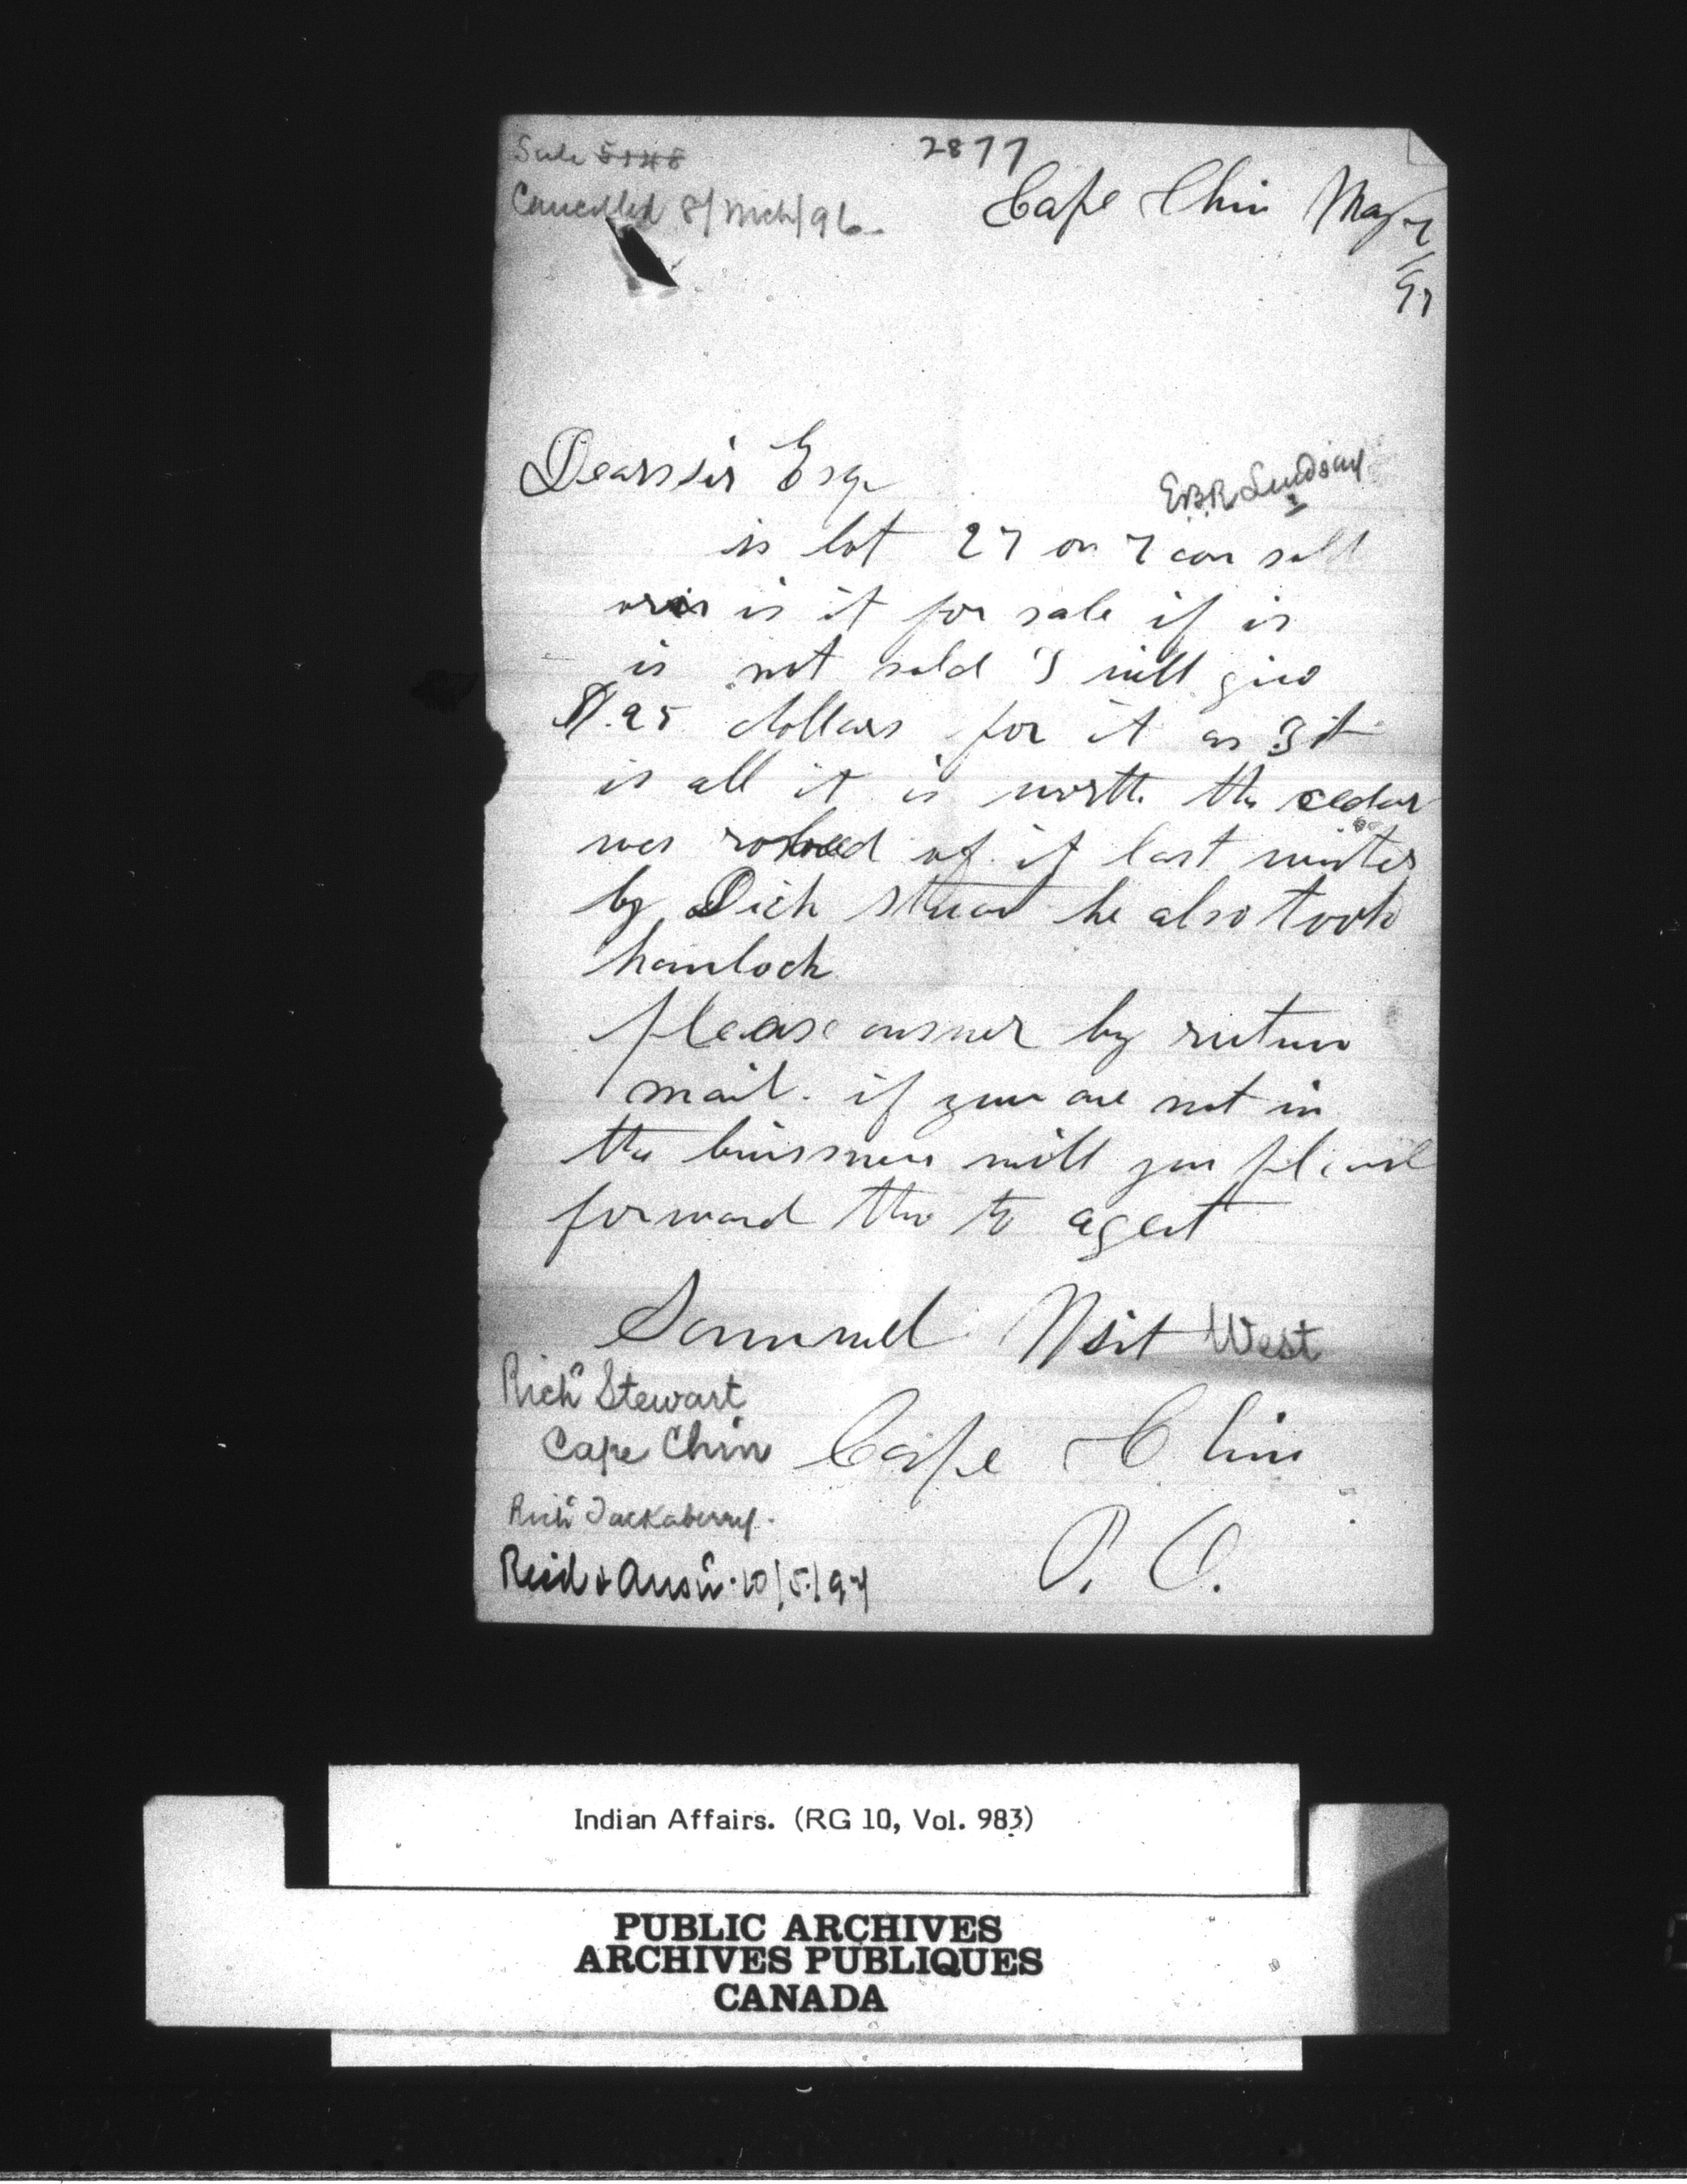 Sale 5148
Cancelled 8/Mch/96
2877
Cape Chin May 7
/97
Dear sir Esqr
E.B.R. Lindsay
is lot 27 on 7 con sold
or is it for sale if is
is not sold I will give
$.25 dollars for it as it
is all it is worth the cedar
was robed of it last winter
by Dick Stuart he also took
hamlock
please answer by return
mail. if you are not in
the buissness will you please
forward this to agent
Sammuel West West
Richd Stewart
Cape Chin
Cape Chin
Richd Jackaberry.
P. O.
Recd & Ansd 10/5/97
Indian Affairs. (RG 10, Vol. 983)
PUBLIC ARCHIVES
ARCHIVES PUBLIQUES
CANADA